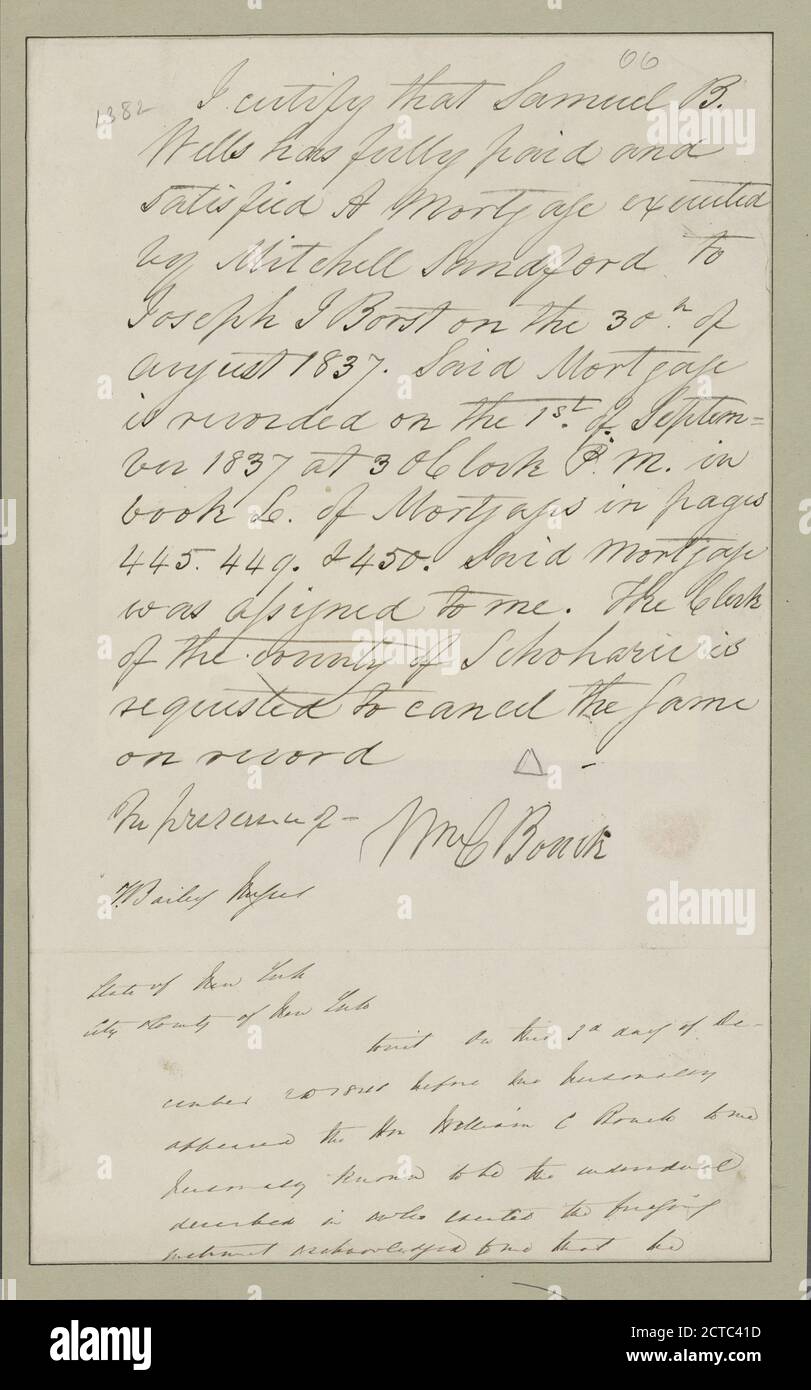 66
1382
I certify that Samuel B.
Wells has fully paid and
satisfied A Mortgage executed
by Mitchell Sandford to
Joseph I Borst on the 30th of
august 1837. Said Mortgage
is recorded on the 1st of Septem=
ber 1837 at 3 OClock P. M. in
book L. of Mortgages in pages
445. 449. & 450. Said Mortgage
was assigned to me. The Clerk
of the county of Schoharie is
requested to cancel the same
on record
In presence of
Wm C Bouck
Bailey
State of New York
City & County of New York
towit On this 3d day of De-
cember AD before me personally
appeared the Hon William C Bouck to me
personally known to be the individual
described in who executed the foregoing
instrument acknowledged to me that he
alamy
alamy
alamy
Image ID: 2CTC41D
www.alamy.com